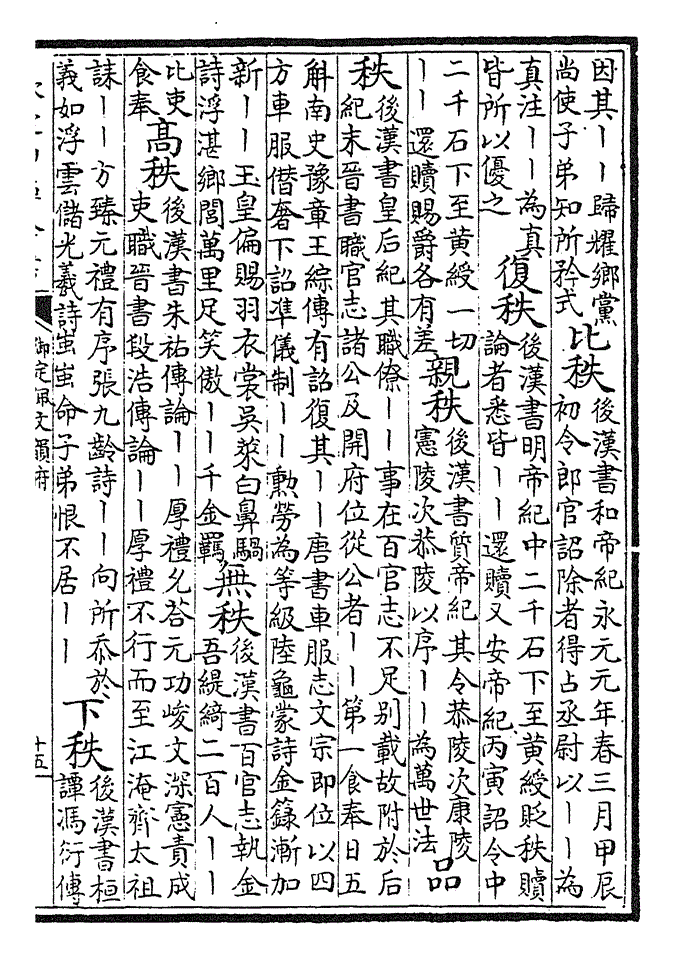 因其丨丨歸耀鄉黨
尚使子弟知所矜式
比秩
後漢書和帝紀永元元年春三月甲辰
初令郎官詔除者得占丞尉以丨丨為
真注丨丨為真
皆所以優之
復秩
後漢書明帝紀中二千石下至黃綬貶秩贖
論者悉皆丨丨還贖又安帝紀丙寅詔令中
二千石下至黃綬一切
丨丨還贖賜爵各有差
親秩
後漢書質帝紀其令恭陵次康陵
憲陵次恭陵以序丨丨為萬世法
品
秩
後漢書皇后紀其職僚丨丨事在百官志不足別載故附於后
紀末晉書職官志諸公及開府位從公者丨丨第一食奉日五
斛南史豫章王綜傳有詔復其丨丨唐書車服志文宗即位以四
方車服僭奢下詔凖儀制丨丨勲勞為等級陸龜蒙詩金籙漸加
新丨丨玉皇偏賜羽衣裳吳萊白鼻騧
詩浮湛鄉閭萬里足笑傲丨丨千金羈
無秩
後漢書百官志執金
吾緹綺二百人丨丨
比吏
食奉
高秩
後漢書朱祐傳論丨丨厚禮允荅元功峻文深憲責成
吏職晉書段浩傳論丨丨厚禮不行而至江淹齊太祖
誄丨丨方臻元禮有序張九齡詩丨丨向所忝於
義如浮雲儲光羲詩蚩蚩命子弟恨不居丨丨
下秩
後漢書桓
譚馮衍傳
御定佩文韻府
十五